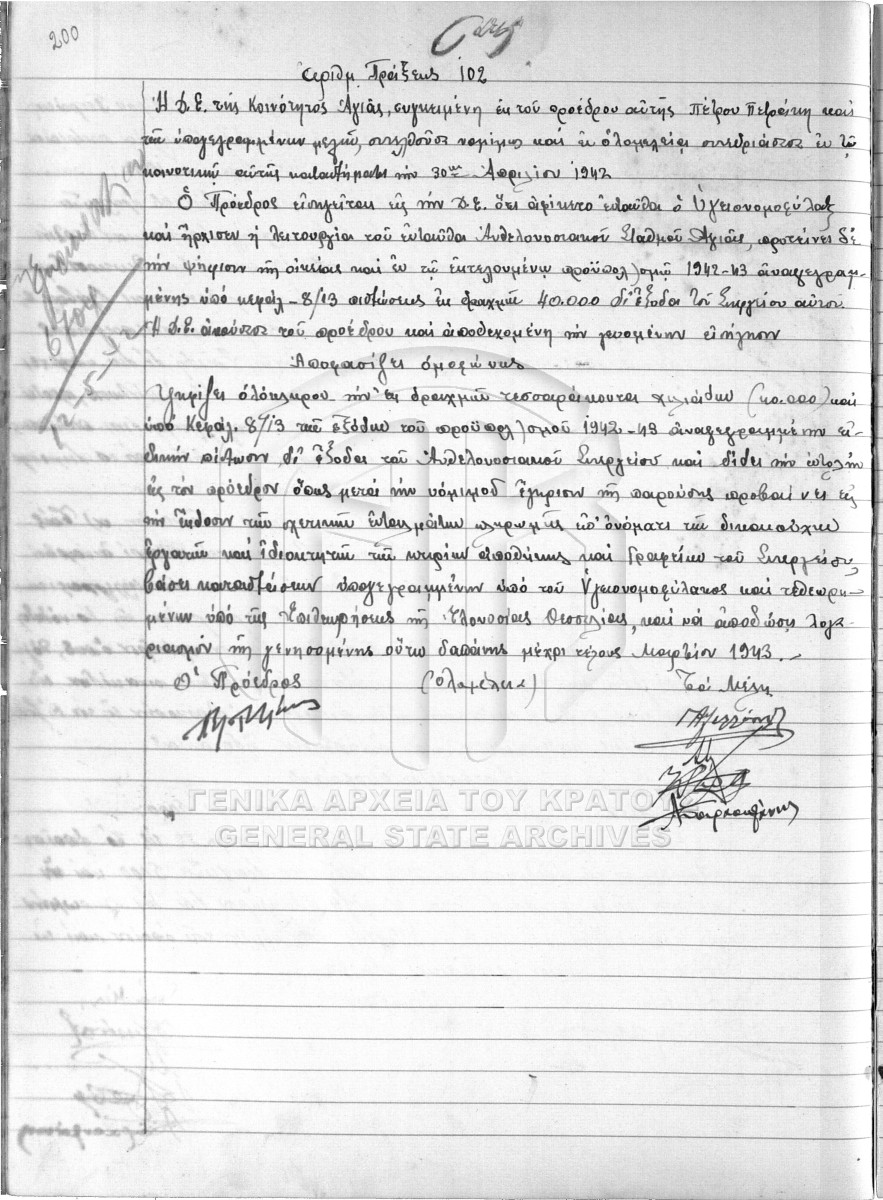 200
Ἀριθμ. Πράξεως 102
Ἡ Δ.Ε. τῆς Κοινότητος Ἁγιᾶς, συγκειμένη ἐκ τοῦ προέδρου αὐτῆς Πέτρου Πετράκη καὶ
τῶν ὑπογεγραμμένων μελῶν, συνελθοῦσα νομίμως καὶ ἐν ὁλομελείᾳ συνεδριάσασα ἐν τῷ
κοινοτικῷ αὐτῆς καταστήματι τὴν 30ην Ἀπριλίου 1942
Ὁ Πρόεδρος εἰσηγεῖται εἰς τὴν Δ.Ε. ὅτι ἀφίκετο ἐνταῦθα ὁ Ὑγειονομοφύλαξ
καὶ ἤρχισεν ἡ λειτουργία τοῦ ἐνταῦθα Ἀνθελονοσιακοῦ Σταθμοῦ Ἁγιᾶς, προτείνει δὲ
τὴν ψήφισιν τῆς οἰκείας καὶ ἐν τῷ ἐκτελουμένῳ προϋπολ)σμῷ 1942-43 ἀναγεγραμ-
μένης ὑπὸ κεφάλ. 8/13 πιστώσεως ἐκ δραχμῶν 40.000 δι' ἔξοδα τοῦ Συνεργείου αὐτοῦ.
Ἡ Δ.Ε. ἀκούσασα τοῦ προέδρου καὶ ἀποδεχομένη τὴν γενομένην εἰσήγησιν
Ἀποφασίζει ὁμοφώνως
Ψηφίζει ὁλόκληρον τὴν ἐκ δραχμῶν τεσσαράκοντα χιλιάδων (40.000) καὶ
ὑπὸ Κεφάλ. 8/13 τῶν ἐξόδων τοῦ προϋπολ)σμοῦ 1942-43 ἀναγεγραμμένην εἰ-
δικὴν πίστωσιν δι' ἔξοδα τοῦ Ἀνθελονοσιακοῦ Συνεργείου καὶ δίδει τὴν ἐντολὴν
εἰς τὸν πρόεδρον ὅπως μετὰ τὴν νόμιμον ἔγκρισιν τῆς παρούσης προβαίνει εἰς
τὴν ἔκδοσιν τῶν σχετικῶν ἐνταλμάτων πληρωμῆς ἐπ' ὀνόματι τῶν δικαιούχων
ἐργατῶν καὶ ἰδιοκτητῶν τῶν κτιρίων ἀποθήκης καὶ Γραφείου τοῦ Συνεργείου,
βάσει καταστάσεων ὑπογεγραμμένων ὑπὸ τοῦ Ὑγειονομοφύλακος καὶ τεθεωρη-
μένων ὑπὸ τῆς Ἐπιθεωρήσεως τῆς Ἑλονοσίας Θεσσαλίας, καὶ νὰ ἀποδώσῃ λογα-
ριασμὸν τῆς γενησομένης οὕτω δαπάνης μέχρι τέλους Μαρτίου 1943.
Ὁ Πρόεδρος (ὁλομέλεια) Τὰ Μέλη
ΓΕΝΙΚΑ ΑΡΧΕΙΑ ΤΟΥ ΚΡΑΤΟΥΣ
GENERAL STATE ARCHIVES